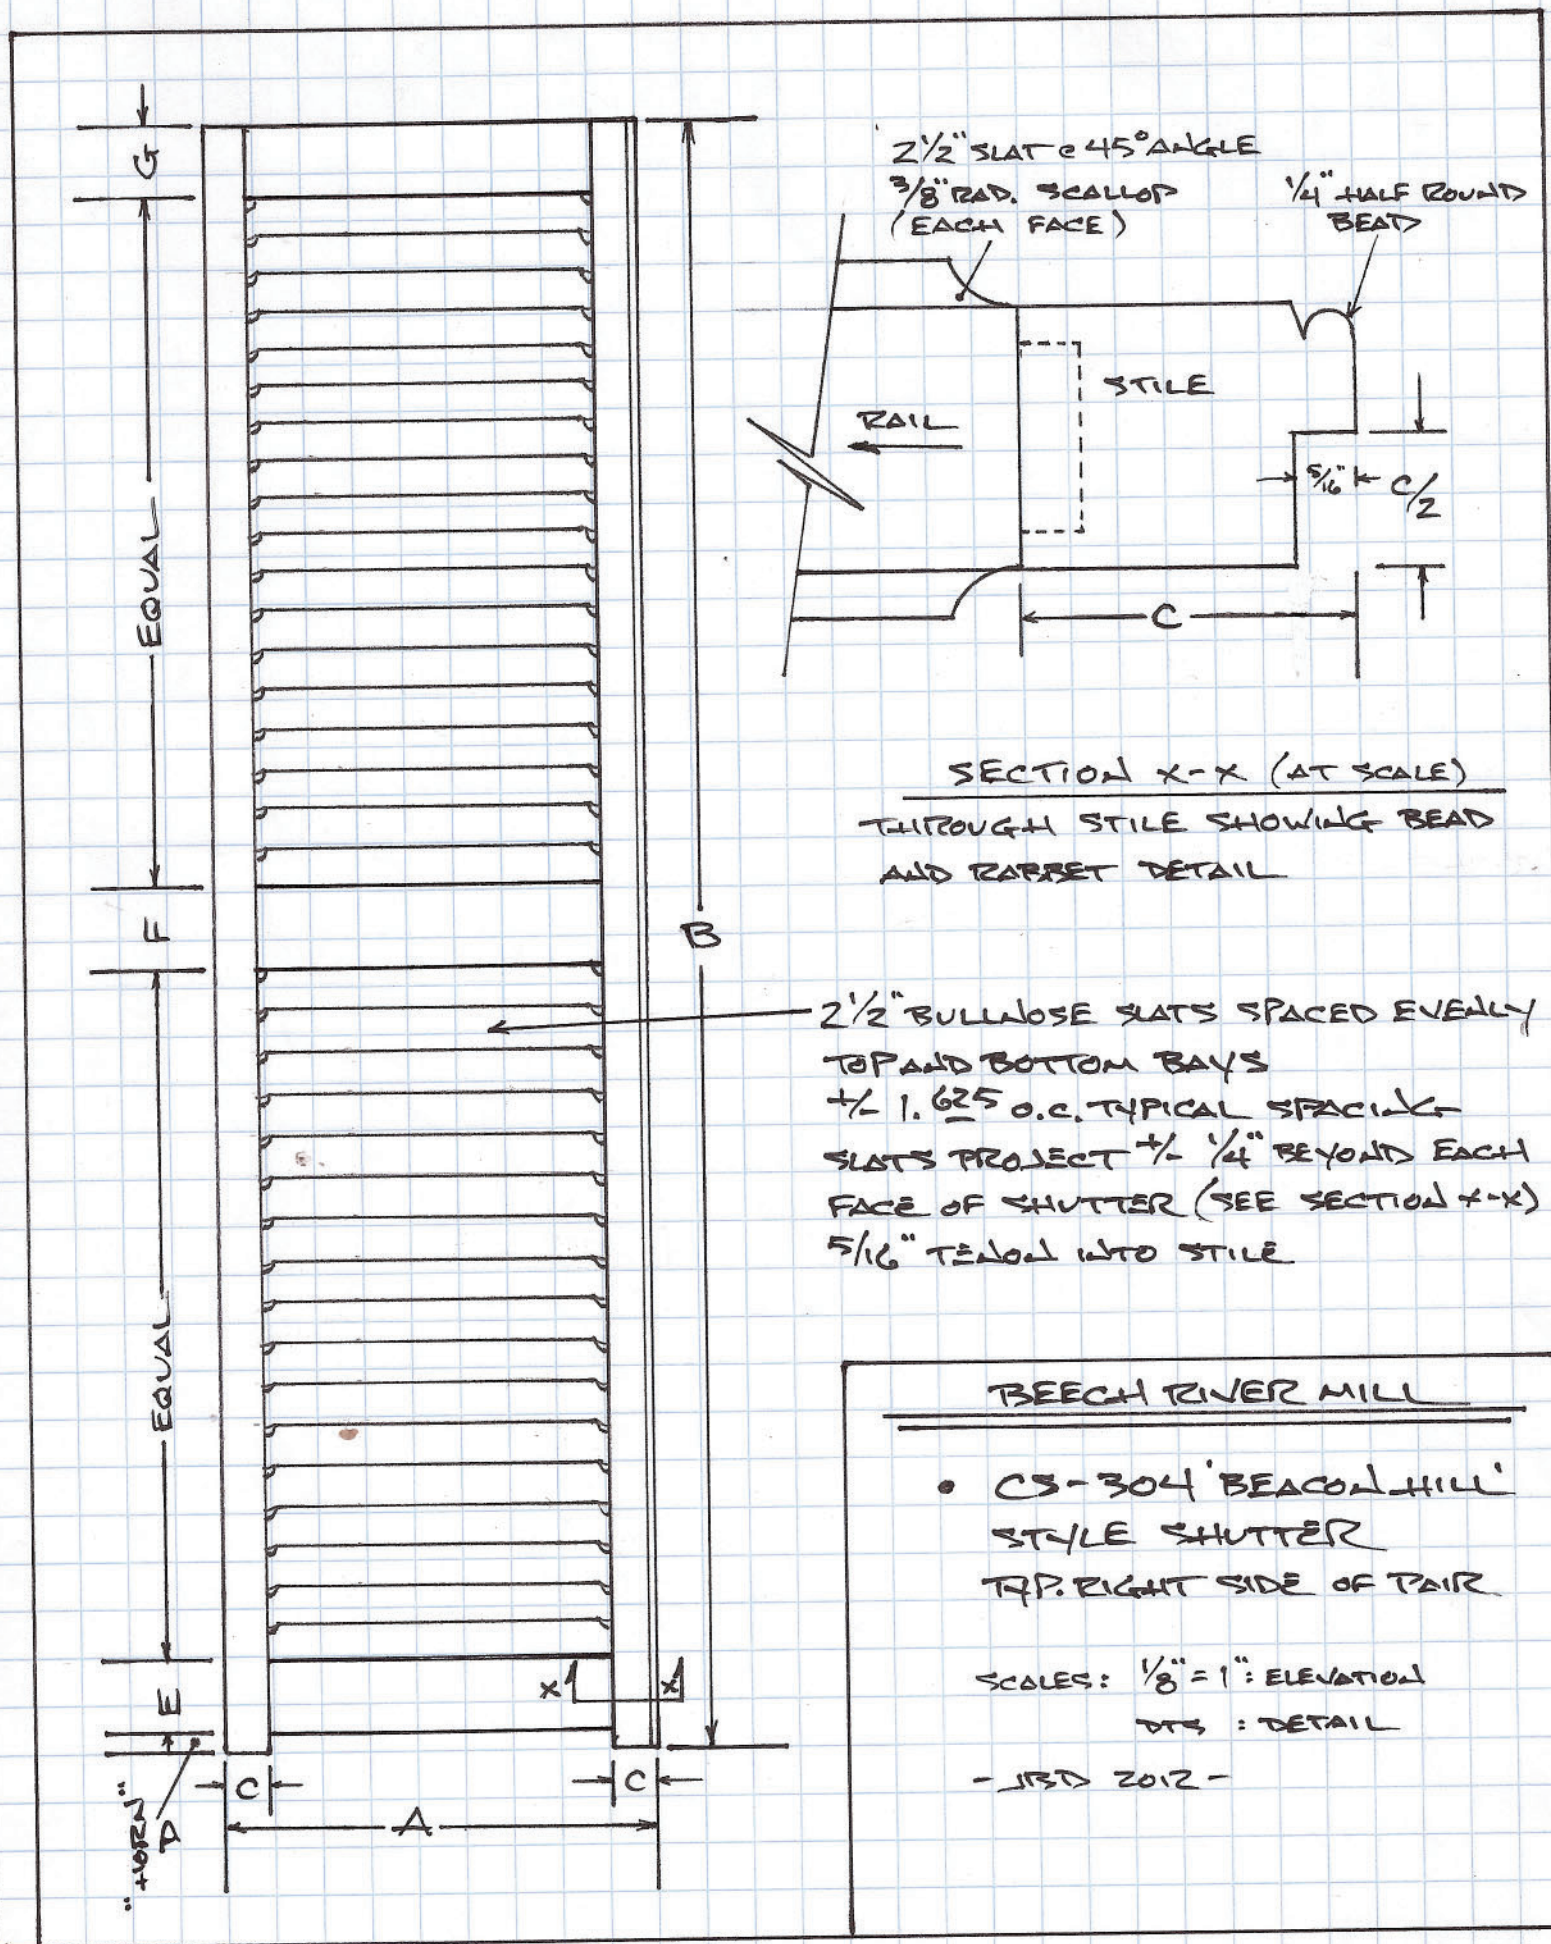 G
EQUAL
F
EQUAL
E
"HORN"
D
C
C
A
B
X
X
2 1/2" SLAT @ 45° ANGLE
3/8" RAD. SCALLOP
(EACH FACE)
1/4" HALF ROUND
BEAD
STILE
RAIL
5/16"
C/2
C
SECTION X-X (AT SCALE)
THROUGH STILE SHOWING BEAD
AND RABBET DETAIL
2 1/2" BULLNOSE SLATS SPACED EVENLY
TOP AND BOTTOM BAYS
+/- 1.625 O.C. TYPICAL SPACING
SLATS PROJECT +/- 1/4" BEYOND EACH
FACE OF SHUTTER (SEE SECTION X-X)
5/16" TENON INTO STILE
BEECH RIVER MILL
• CS-304 'BEACON HILL'
STYLE SHUTTER
TYP. RIGHT SIDE OF PAIR
SCALES: 1/8" = 1": ELEVATION
DTS : DETAIL
- JBD 2012 -